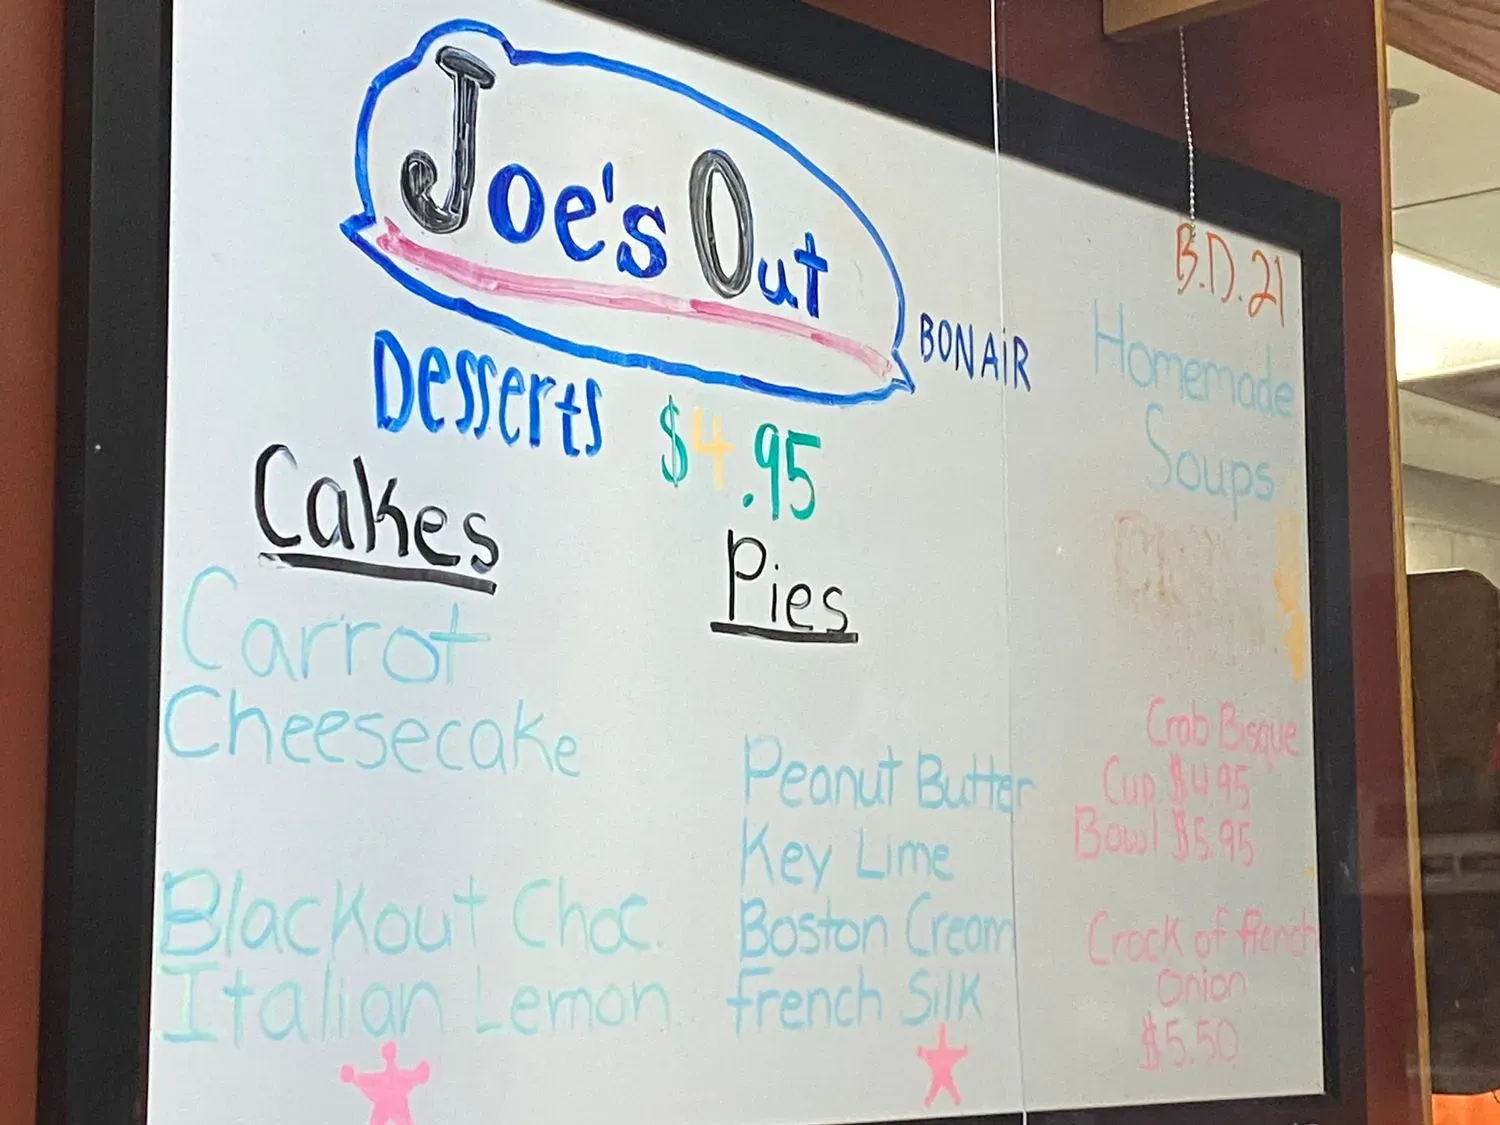 Joe's Out
BONAIR
Desserts $4.95
Cakes
Carrot
Cheesecake
Blackout Choc.
Italian Lemon
Pies
Peanut Butter
Key Lime
Boston Cream
French Silk
B.D. 21
Homemade
Soups
Crab Bisque
Cup $4.95
Bowl $5.95
Crock of French
Onion
$5.50